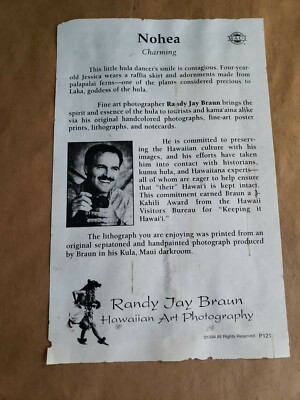 Nohea
Charming
This little hula dancer's smile is contagious. Four-year-
old Jessica wears a raffia skirt and adornments made from
palapalai ferns—one of the plants considered precious to
Laka, goddess of the hula.
Fine art photographer Randy Jay Braun brings the
spirit and essence of the hula to tourists and kama'aina alike
via his original handcolored photographs, fine-art poster
prints, lithographs, and notecards.
He is committed to preserv-
ing the Hawaiian culture with his
images, and his efforts have taken
him into contact with historians,
kumu hula, and Hawaiiana experts—
all of whom are eager to help ensure
that "their" Hawai'i is kept intact.
This commitment earned Braun a
Kahili Award from the Hawaii
Visitors Bureau for "Keeping it
Hawai'i."
The lithograph you are enjoying was printed from an
original sepiatoned and handpainted photograph produced
by Braun in his Kula, Maui darkroom.
Randy Jay Braun
Hawaiian Art Photography
All Rights Reserved P121